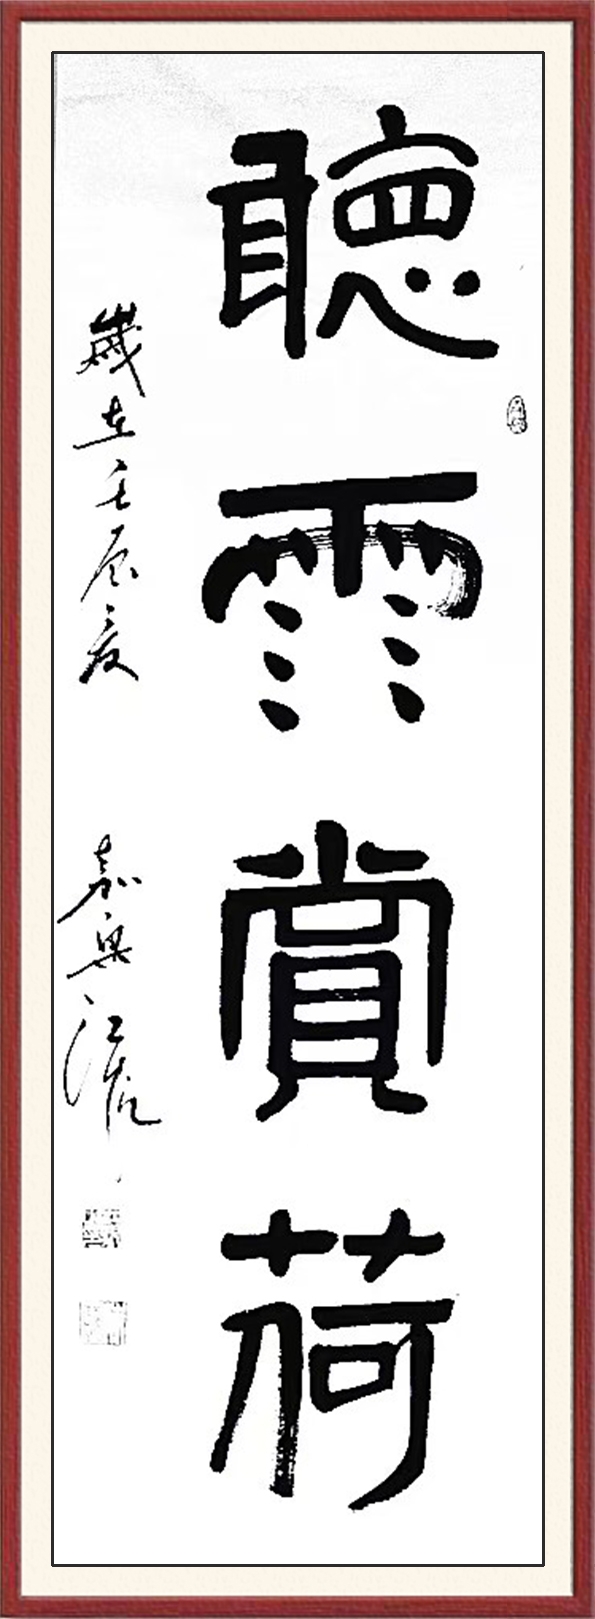 聽雨賞荷
歲在壬辰夏
嘉興江